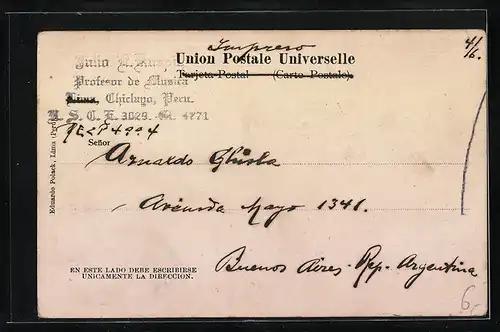 Impreso
Union Postale Universelle
Tarjeta Postal (Carte Postale)
4/6.
Julio
Profesor de Musica
Lima, Chiclayo, Peru.
3029 4771
Señor
Arnardo Ghisla
Avenida Mayo 1341.
Buenos Aires. Rep. Argentina
EN ESTE LADO DEBE ESCRIBIRSE
UNICAMENTE LA DIRECCION.
Eduardo Polack, Lima (Perú)
6